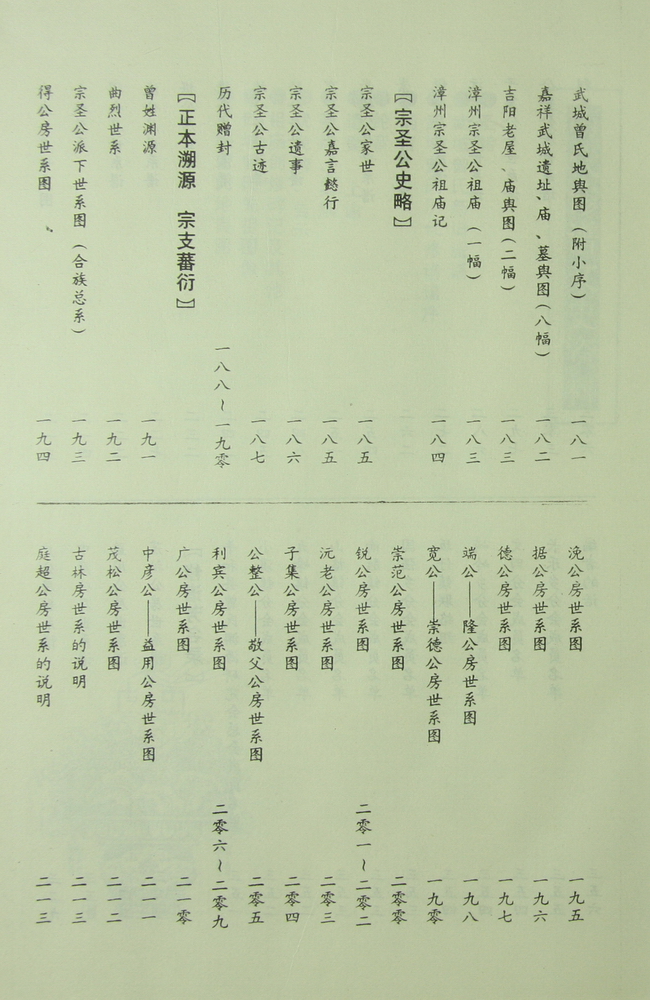 武城曾氏地舆图（附小序） 一八一
嘉祥武城遗址、庙、墓舆图（八幅） 一八二
吉阳老屋、庙舆图（二幅） 一八三
漳州宗圣公祖庙（一幅） 一八三
漳州宗圣公祖庙记 一八四
【宗圣公史略】
宗圣公家世 一八五
宗圣公嘉言懿行 一八五
宗圣公遗事 一八六
宗圣公古迹 一八七
历代赠封 一八八～一九零
【正本溯源 宗支蕃衍】
曾姓渊源 一九一
曲烈世系 一九二
宗圣公派下世系图（合族总系） 一九三
得公房世系图 一九四
浼公房世系图 一九五
据公房世系图 一九六
德公房世系图 一九七
端公——隆公房世系图 一九八
宽公——崇德公房世系图 一九零
崇范公房世系图 二零零
锐公房世系图 二零一～二零二
沅老公房世系图 二零三
子集公房世系图 二零四
公整公——敬父公房世系图 二零五
利宾公房世系图 二零六～二零九
广公房世系图 二一零
中彦公——益用公房世系图 二一一
茂松公房世系图 二一二
古林房世系的说明 二一三
庭超公房世系的说明 二一三